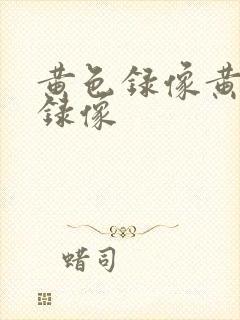 黄色録像黄
録像
蜡司